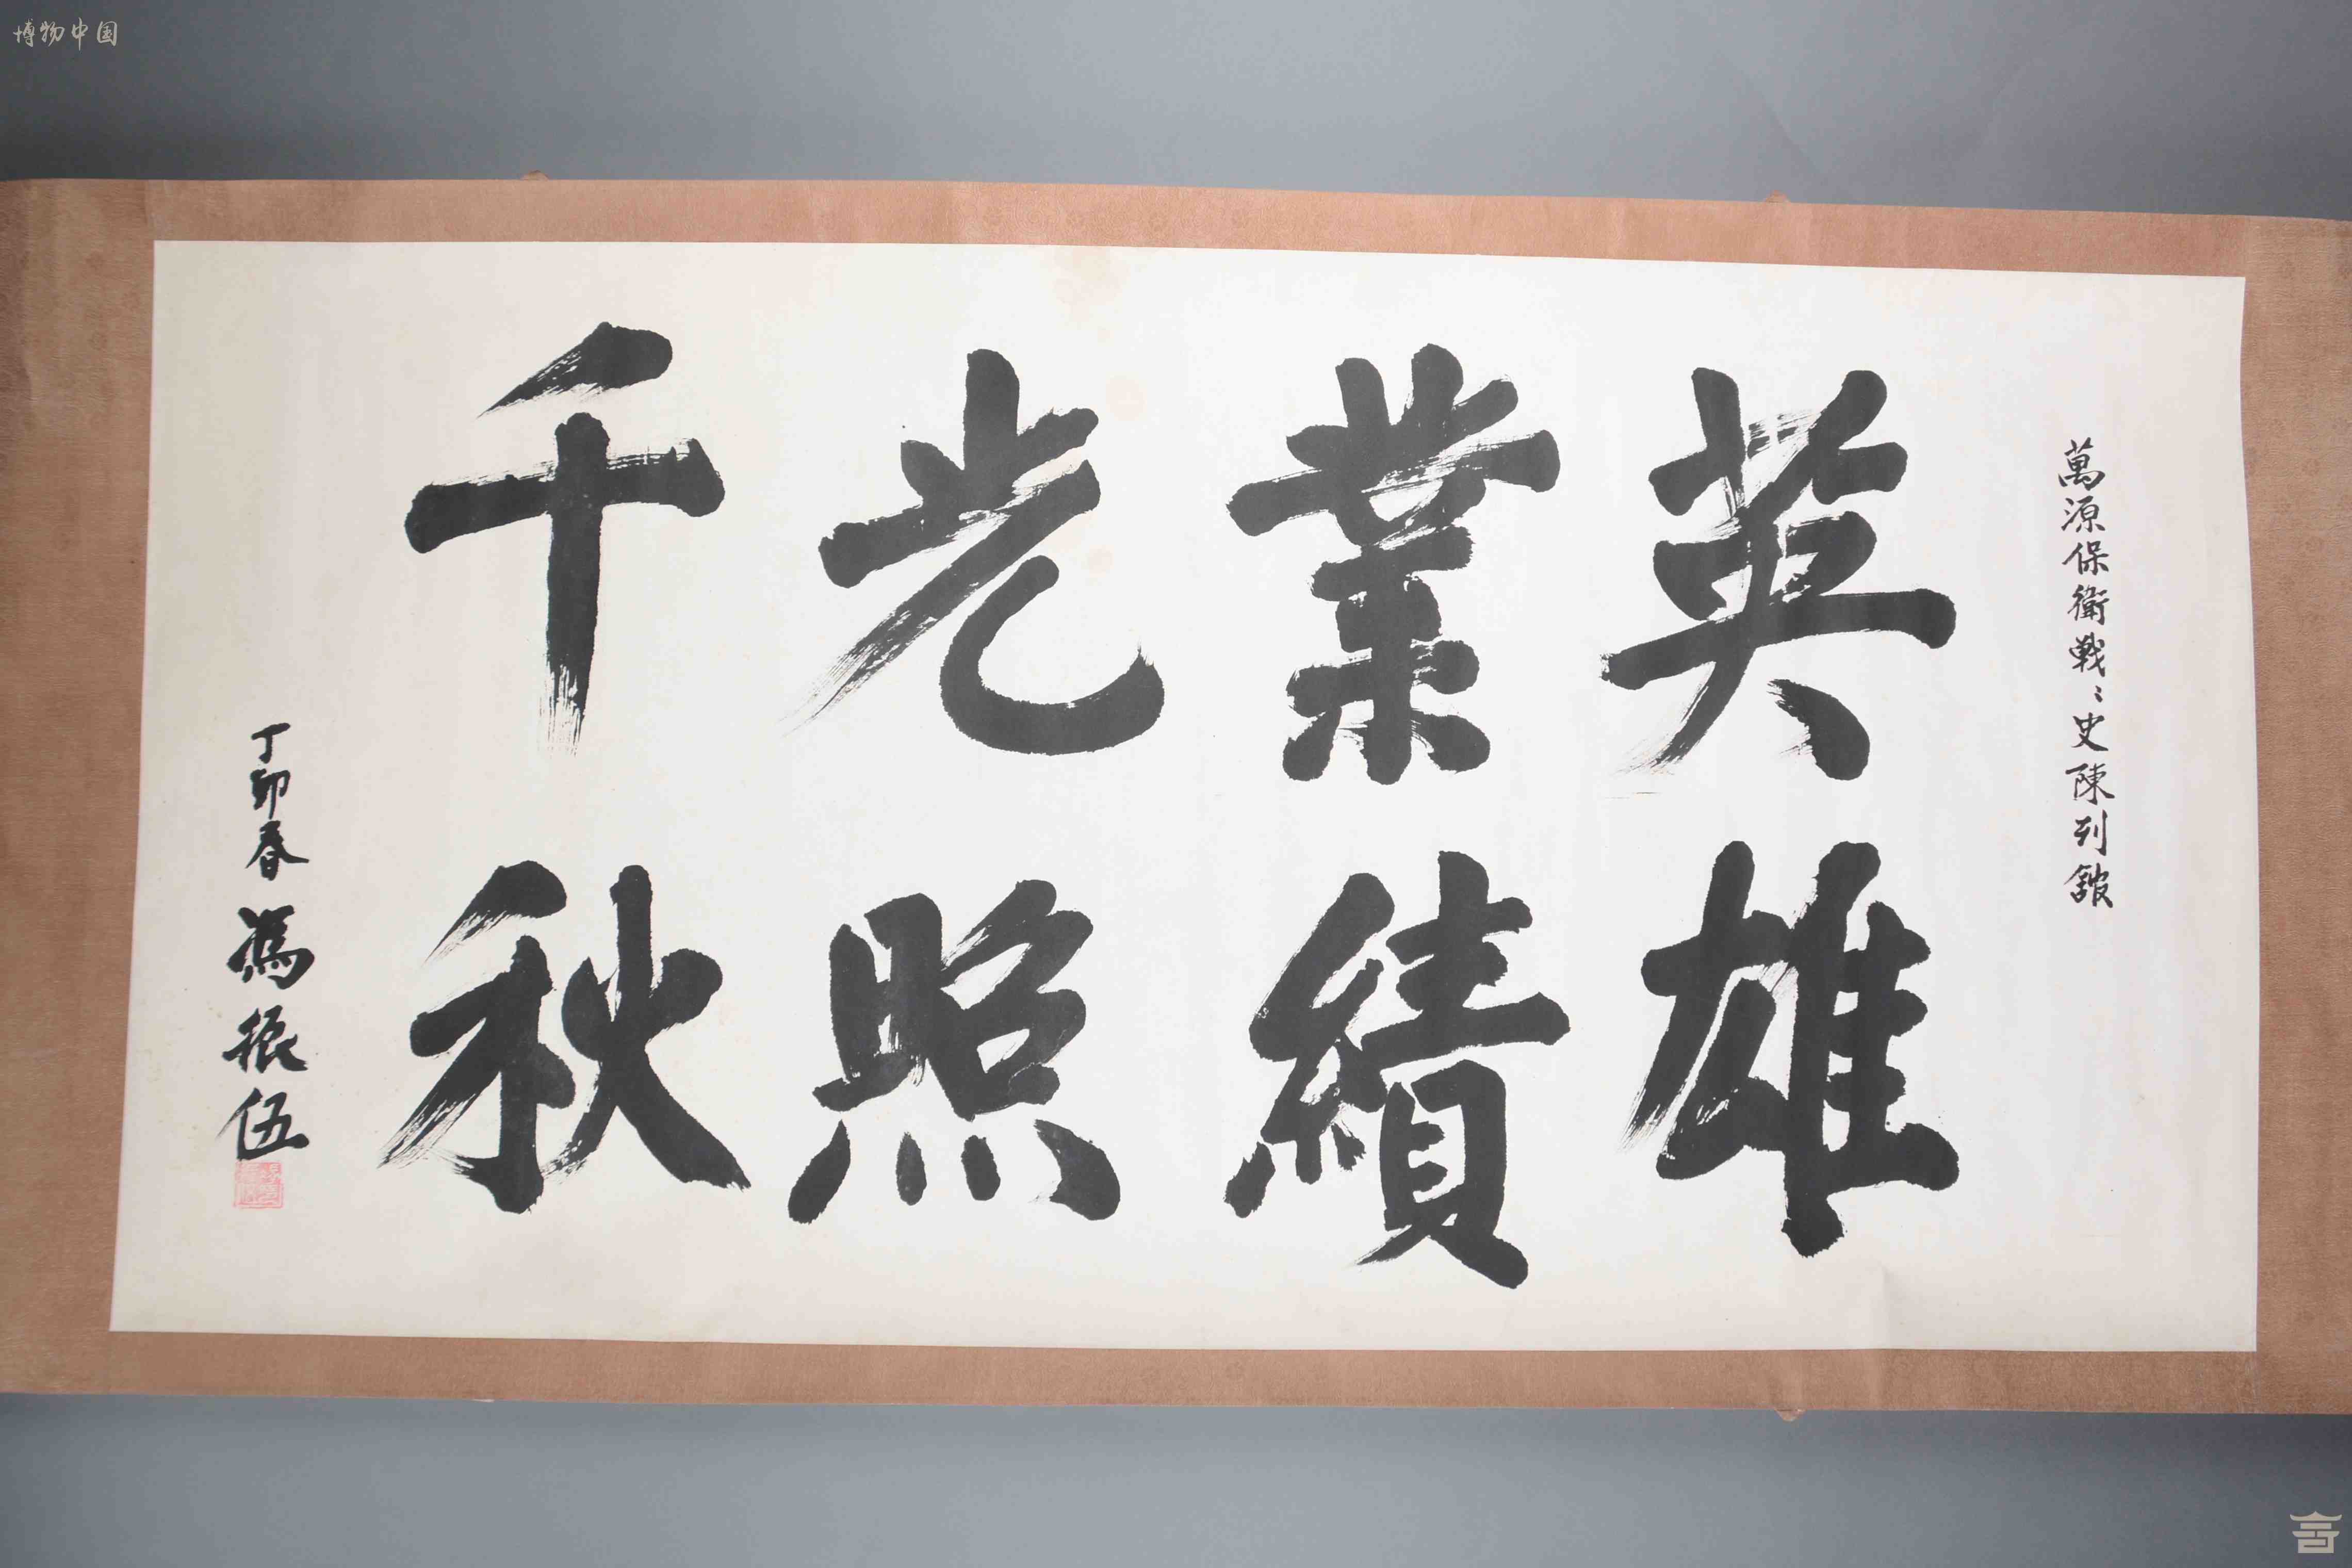 博物中国
萬源保衛戰〻史陳列舘
英雄
業績
光照
千秋
丁卯春 馮振伍